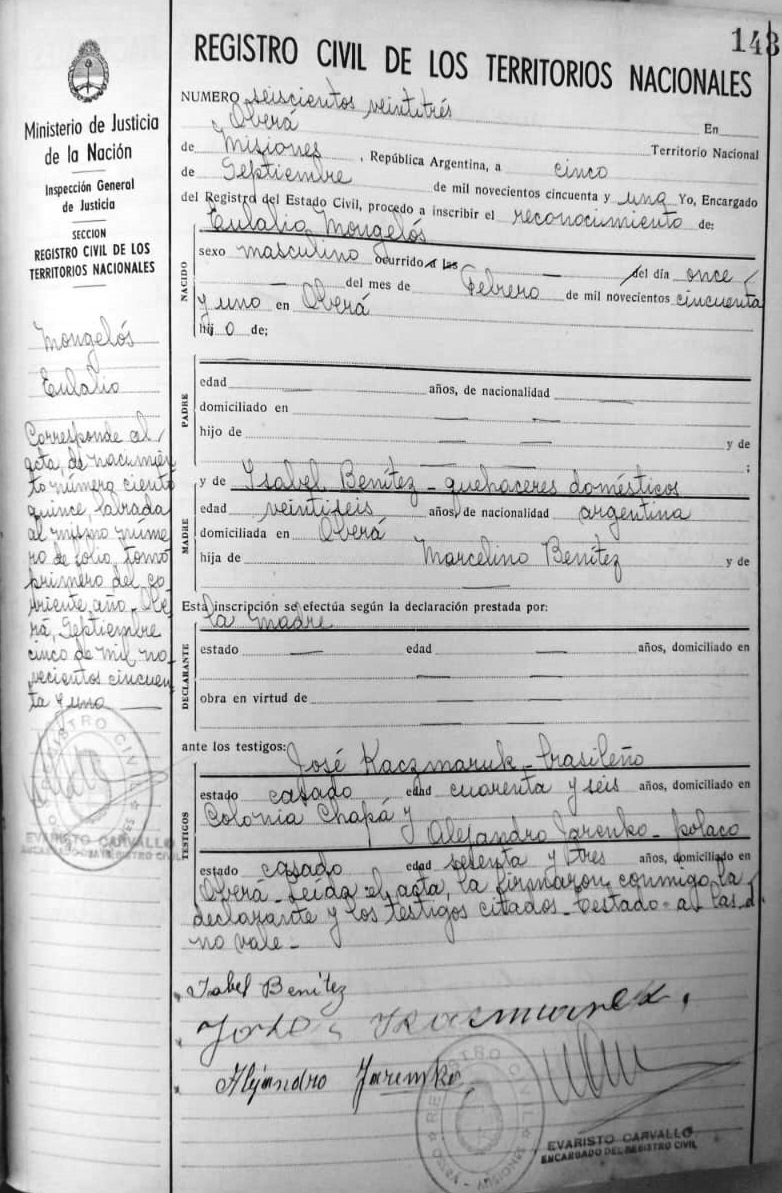 143
REGISTRO CIVIL DE LOS TERRITORIOS NACIONALES
Ministerio de Justicia
de la Nación
Inspección General
de Justicia
SECCION
REGISTRO CIVIL DE LOS
TERRITORIOS NACIONALES
Mongelós
Eulalio
Corresponde al
acta, de nacimien
to número ciento
quince, labrada
al mismo núme
ro de folio, tomo
primero del co
rriente, año. Obe
rá, Septiembre
cinco de mil no
vecientos cincuen
ta y uno
REGISTRO CIVIL
EVARISTO CARVALLO
ENCARGADO DEL REGISTRO CIVIL
NUMERO seiscientos veintitrés
En Oberá
de Misiones, República Argentina, a cinco Territorio Nacional
de Septiembre de mil novecientos cincuenta y uno Yo, Encargado
del Registro del Estado Civil, procedo a inscribir el reconocimiento de:
Eulalio Mongelós
NACIDO
sexo masculino ocurrido a las — del día once
— del mes de Febrero de mil novecientos cincuenta
y uno en Oberá
hij o de;
PADRE
edad — años, de nacionalidad —
domiciliado en — —
hijo de — — y de
;
MADRE
y de Isabel Benítez - quehaceres domésticos
edad veintiseis años, de nacionalidad argentina
domiciliada en Oberá
hija de Marcelino Benítez y de
—
Esta inscripción se efectúa según la declaración prestada por:
la madre
DECLARANTE
estado — edad — años, domiciliado en
— —
obra en virtud de — —
— —
ante los testigos: José Kaczmaruk - brasileño
TESTIGOS
estado casado edad cuarenta y seis años, domiciliado en
Colonia Chapá y Alejandro Jarenko - polaco
estado casado edad setenta y tres años, domiciliado en
Oberá - Leída el acta, la firmaron conmigo, la
declarante y los testigos citados - Testado = a las d
no vale -
Isabel Benítez
Alejandro Jaremko
REGISTRO CIVIL
OBERA - MISIONES
EVARISTO CARVALLO
ENCARGADO DEL REGISTRO CIVIL